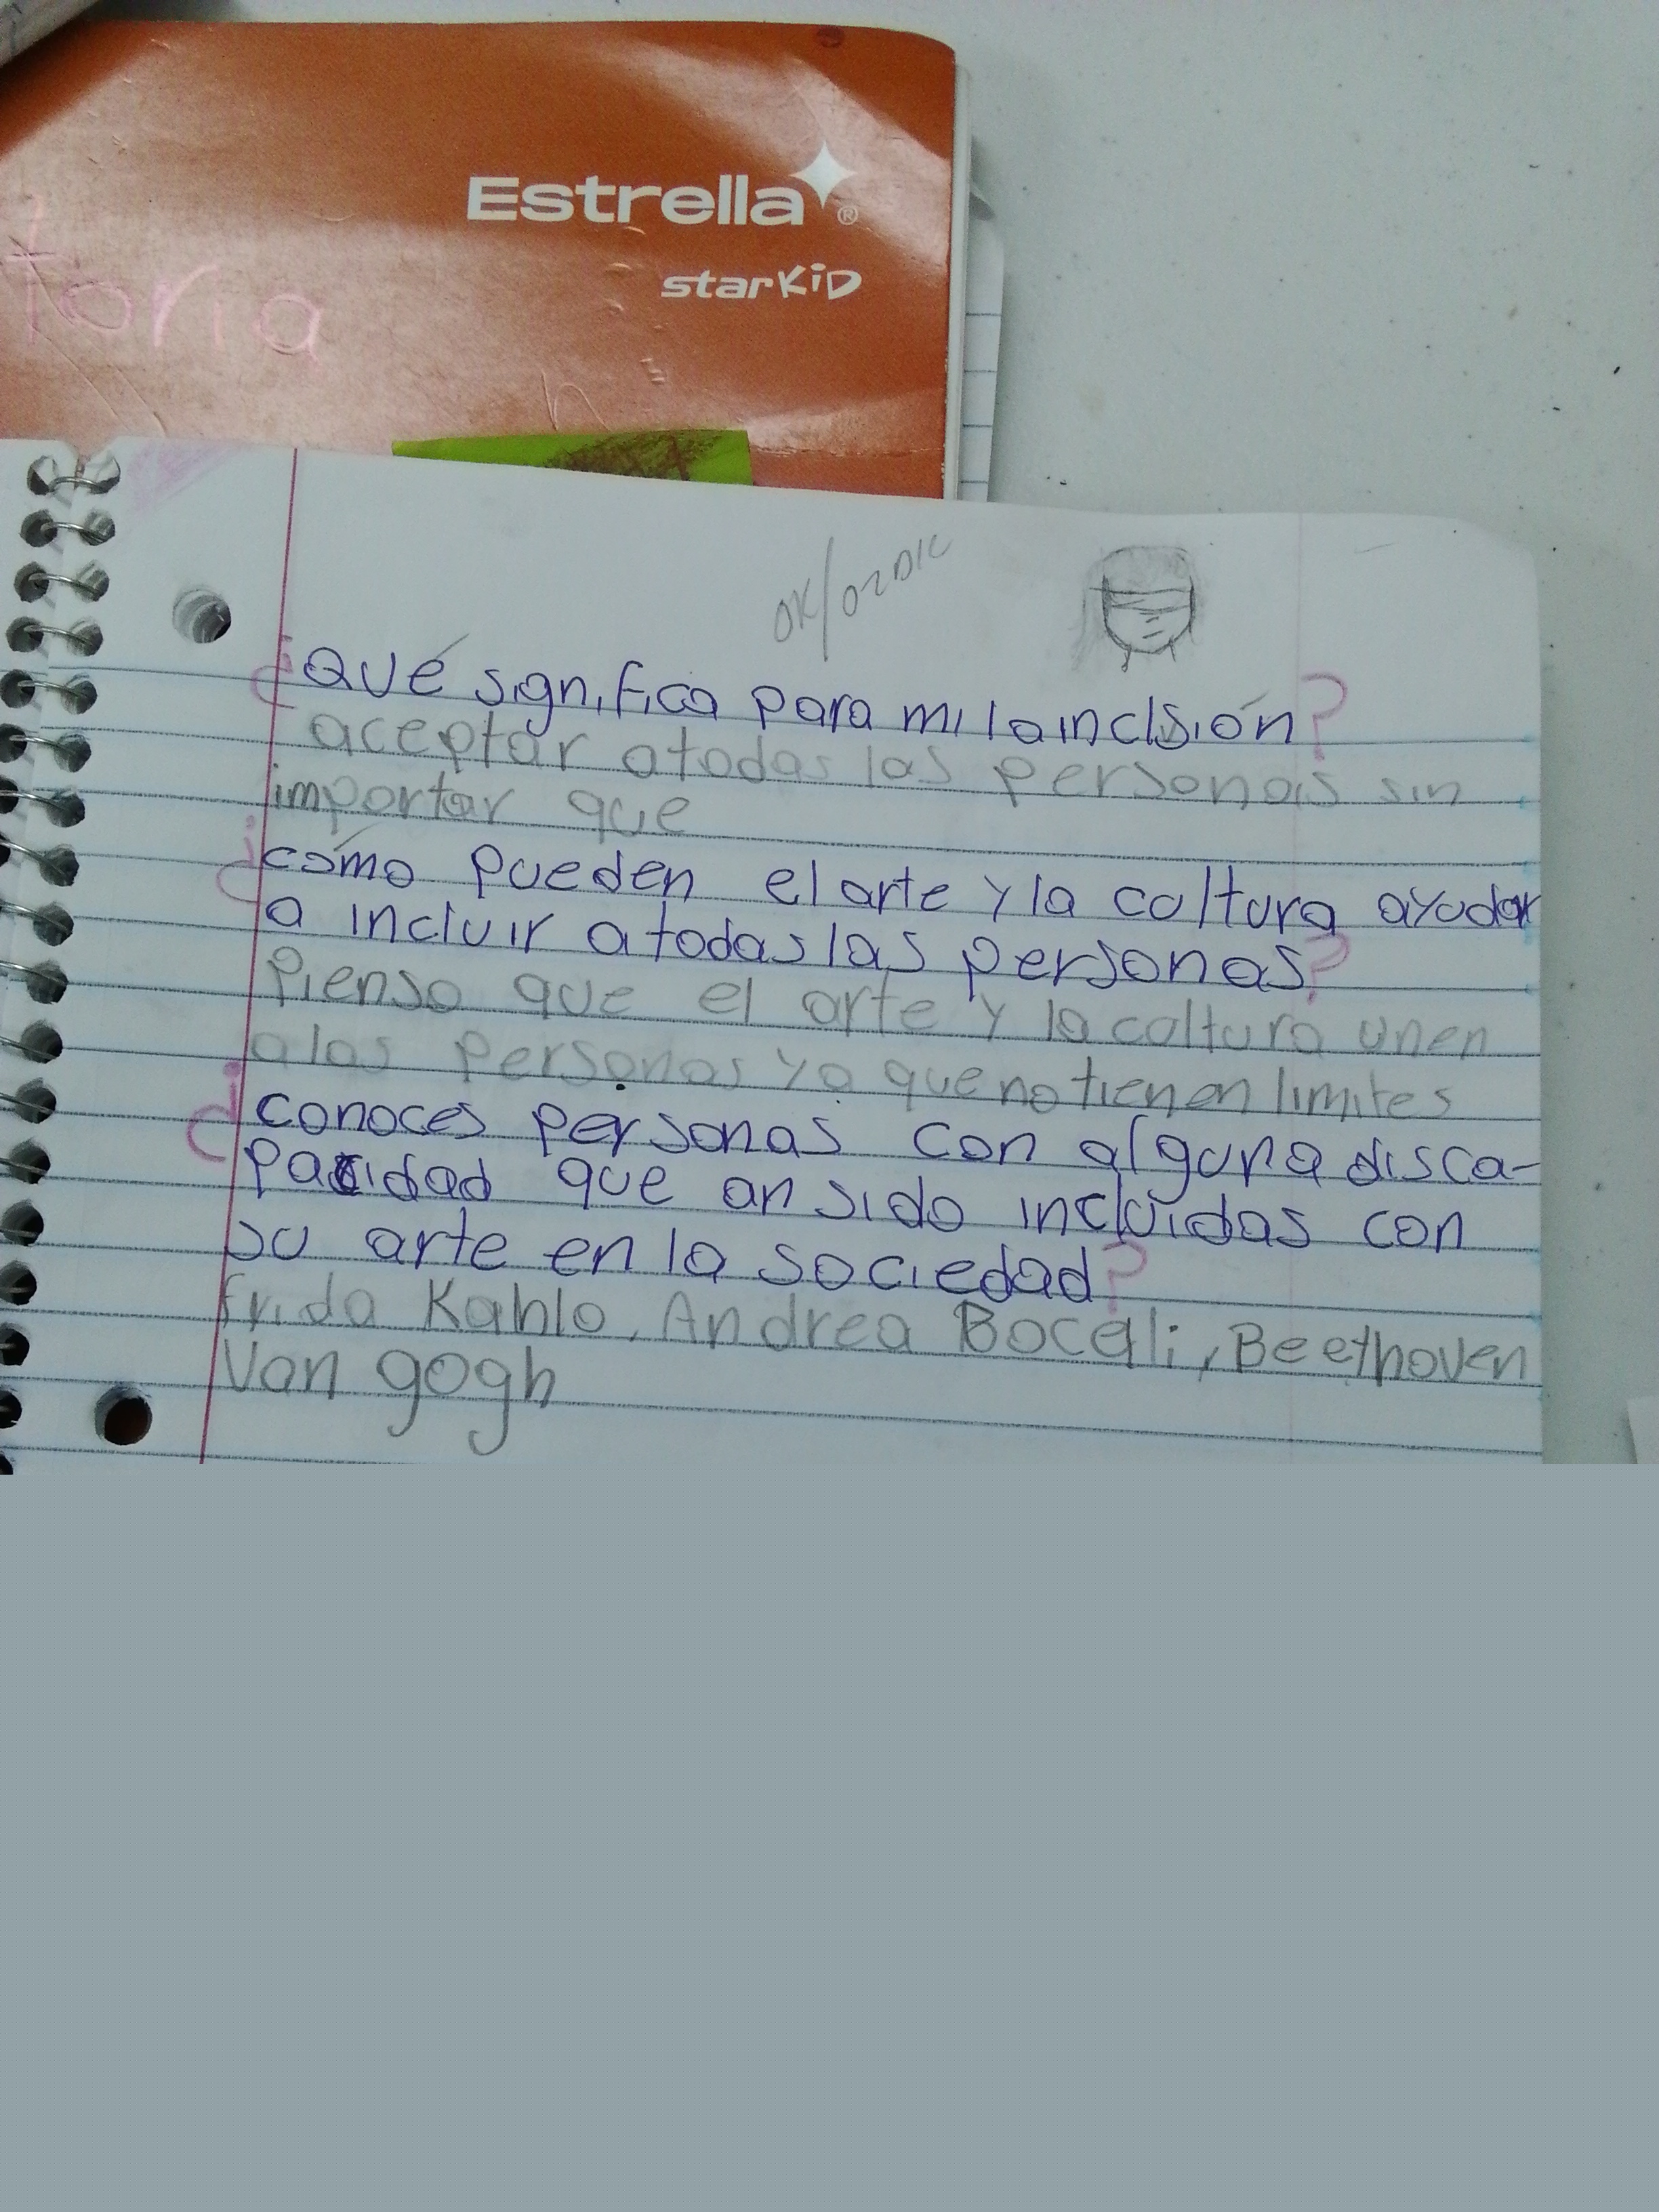 Estrella®
starKiD
toria
OK/02DIC
¿Qué significa para mi la inclsión?
aceptar a todas las personas sin
importar que
¿cómo pueden el arte y la coltura ayudar
a incluir a todas las personas?
Pienso que el arte y la coltura unen
a las personas ya que no tienen limites
¿conoces personas con alguna disca-
pacidad que an sido incluidas con
su arte en la sociedad?
frida Kahlo, Andrea Boceli, Beethoven
Van gogh